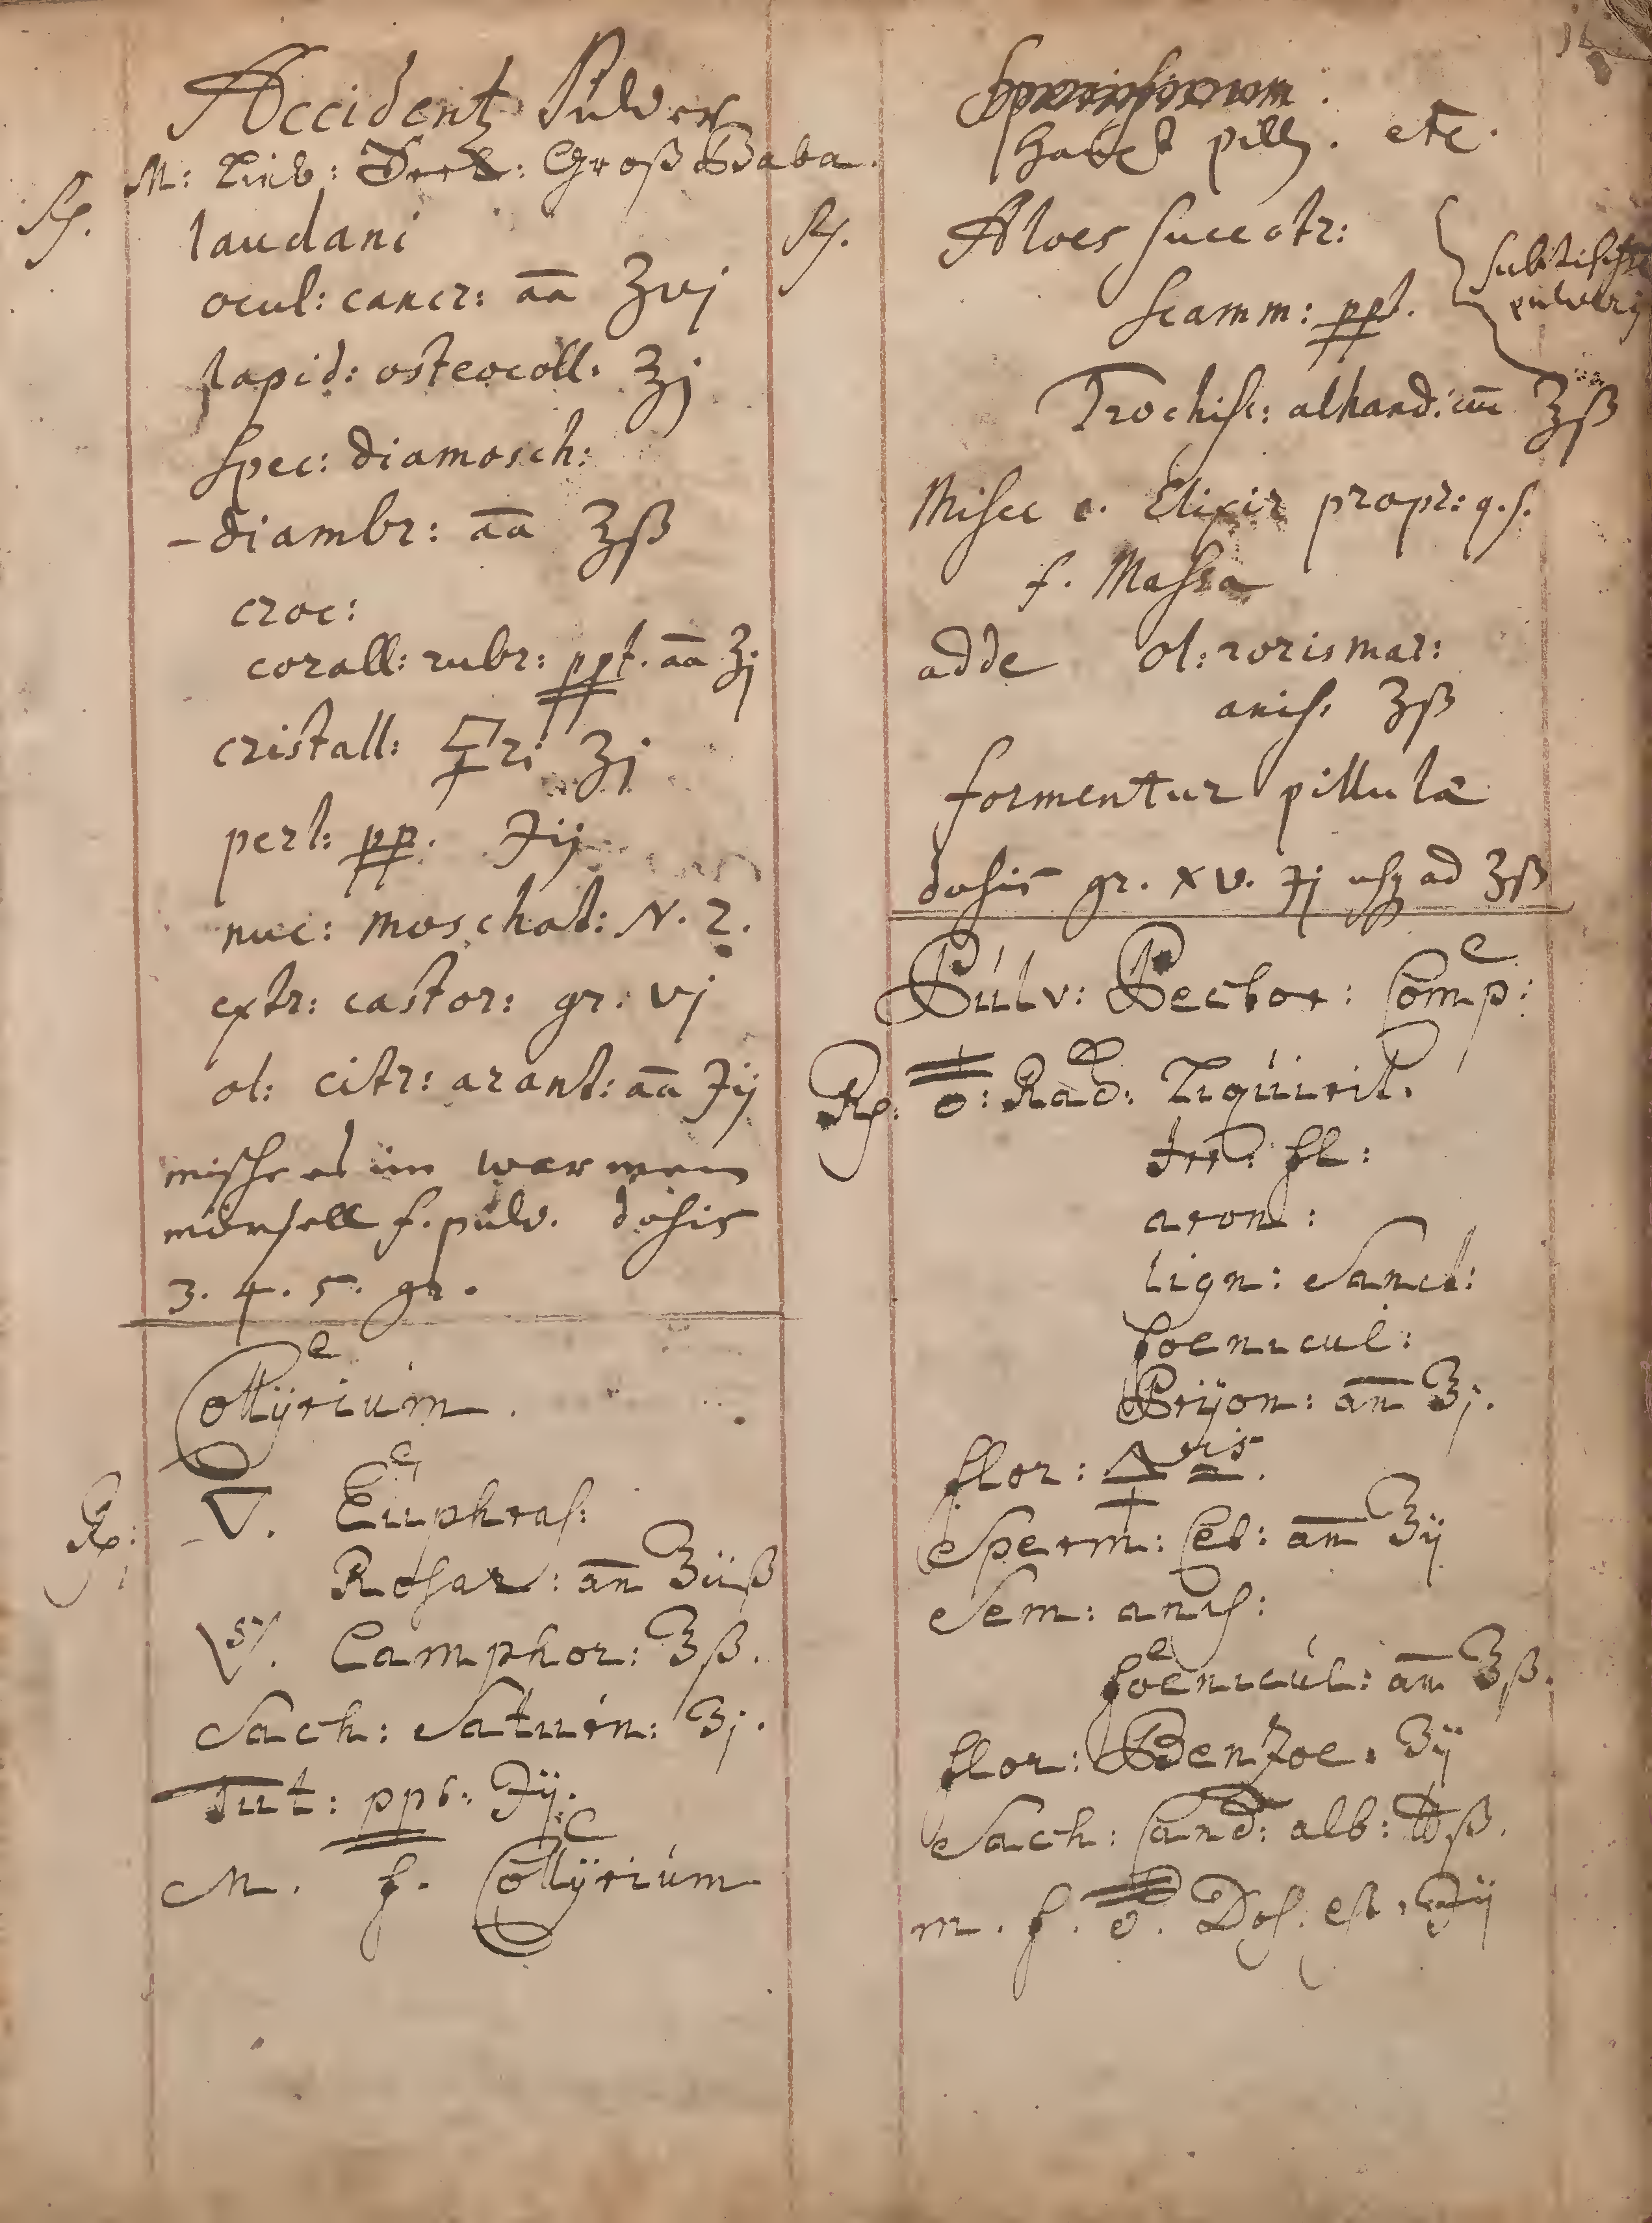 Accidentz Pulver
M: Lieb: Groß Baba.
℞. laudani
ocul: cancr: āā ʒvj
lapid: osteocoll. ʒj
spec: diamosch:
– diambr: āā ʒß
croc:
corall: rubr: ppt. āā ʒj
cristall: 🜿ri ʒj
perl: pp. ℈ij
nuc: moschat: N. 2.
extr: castor: gr: vj
ol: citr: arant: āā ℈ij
mische es im warmen
mörsell f. pulv. dosis
3. 4. 5. gr.
Collÿrium.
℞: 🜄. Euphras:
Rosar: an ℥iiß
Camphor: ʒß.
Sach: Saturn: ʒj.
Tut: ppt: ℈ij.
M. f. Collÿrium
pill. etc.
℞. Aloes succotr:
scamm: ppt.
Trochisc: alhand: ʒß
Misce c. Elixir propr: q.s.
f. Massa
adde ol: rorismar:
anis: ʒß
formentur pillulæ
dosis gr. xv. ℈j usq ad ʒß
Pulv: Pector: Comp:
℞: Rad: Liquirit.
Ir: fl:
aron:
lign: Sanct:
foenicul:
Brÿon: an ʒj.
flor: 🜍is.
Sperm: Cet: an ʒij
Sem: anis:
foenicul: an ʒß.
flor: Benzoe. ʒij
Sach: Cand: alb: ℔ß.
m. f. Dos. est ℈ij